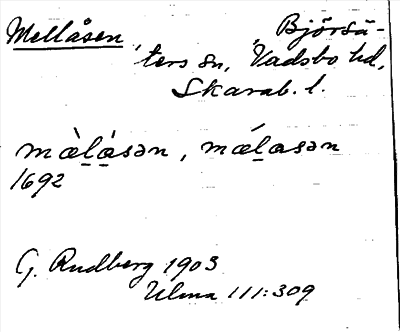 Mellåsen Björsä-
ters sn, Vadsbo hd,
Skarab. l.
mæ̀l̠àsən, mǽl̠asən
1692
G. Rudberg 1903
Ulma 111:309